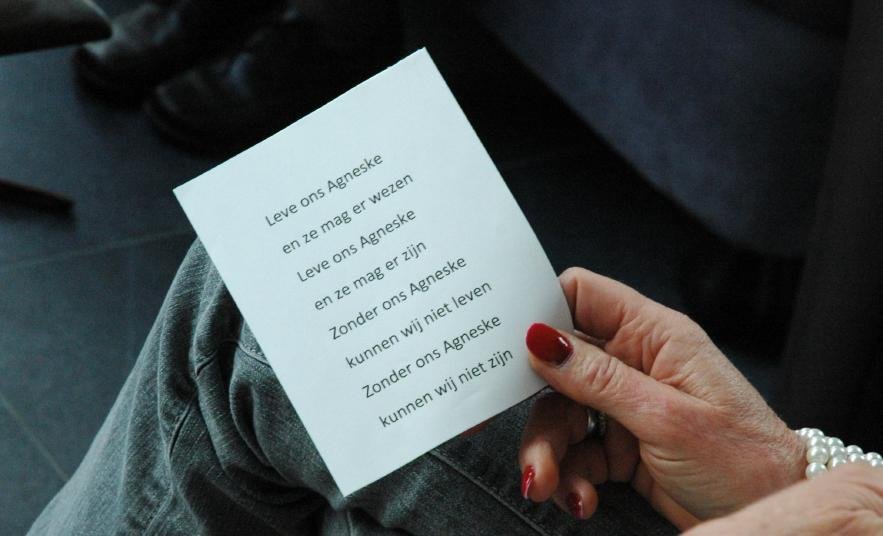 Leve ons Agneske
en ze mag er wezen
Leve ons Agneske
en ze mag er zijn
Zonder ons Agneske
kunnen wij niet leven
Zonder ons Agneske
kunnen wij niet zijn